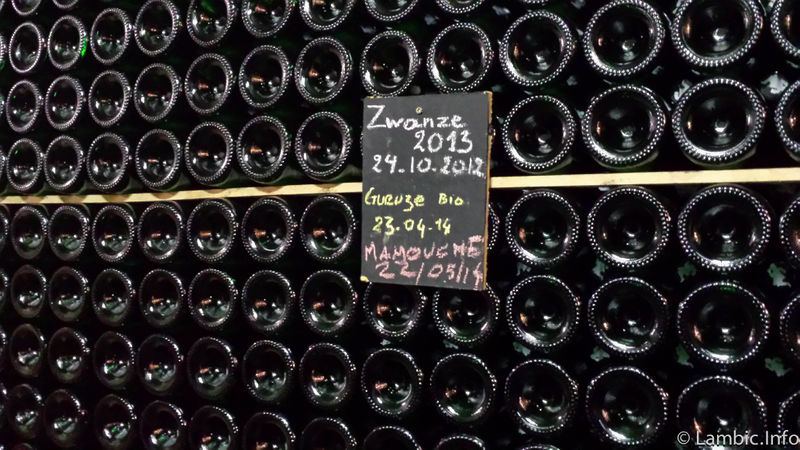 Zwanze
2013
24.10.2012
Gueuze Bio
23.04.14
MAMOUCHE
22/05/14
© Lambic.Info